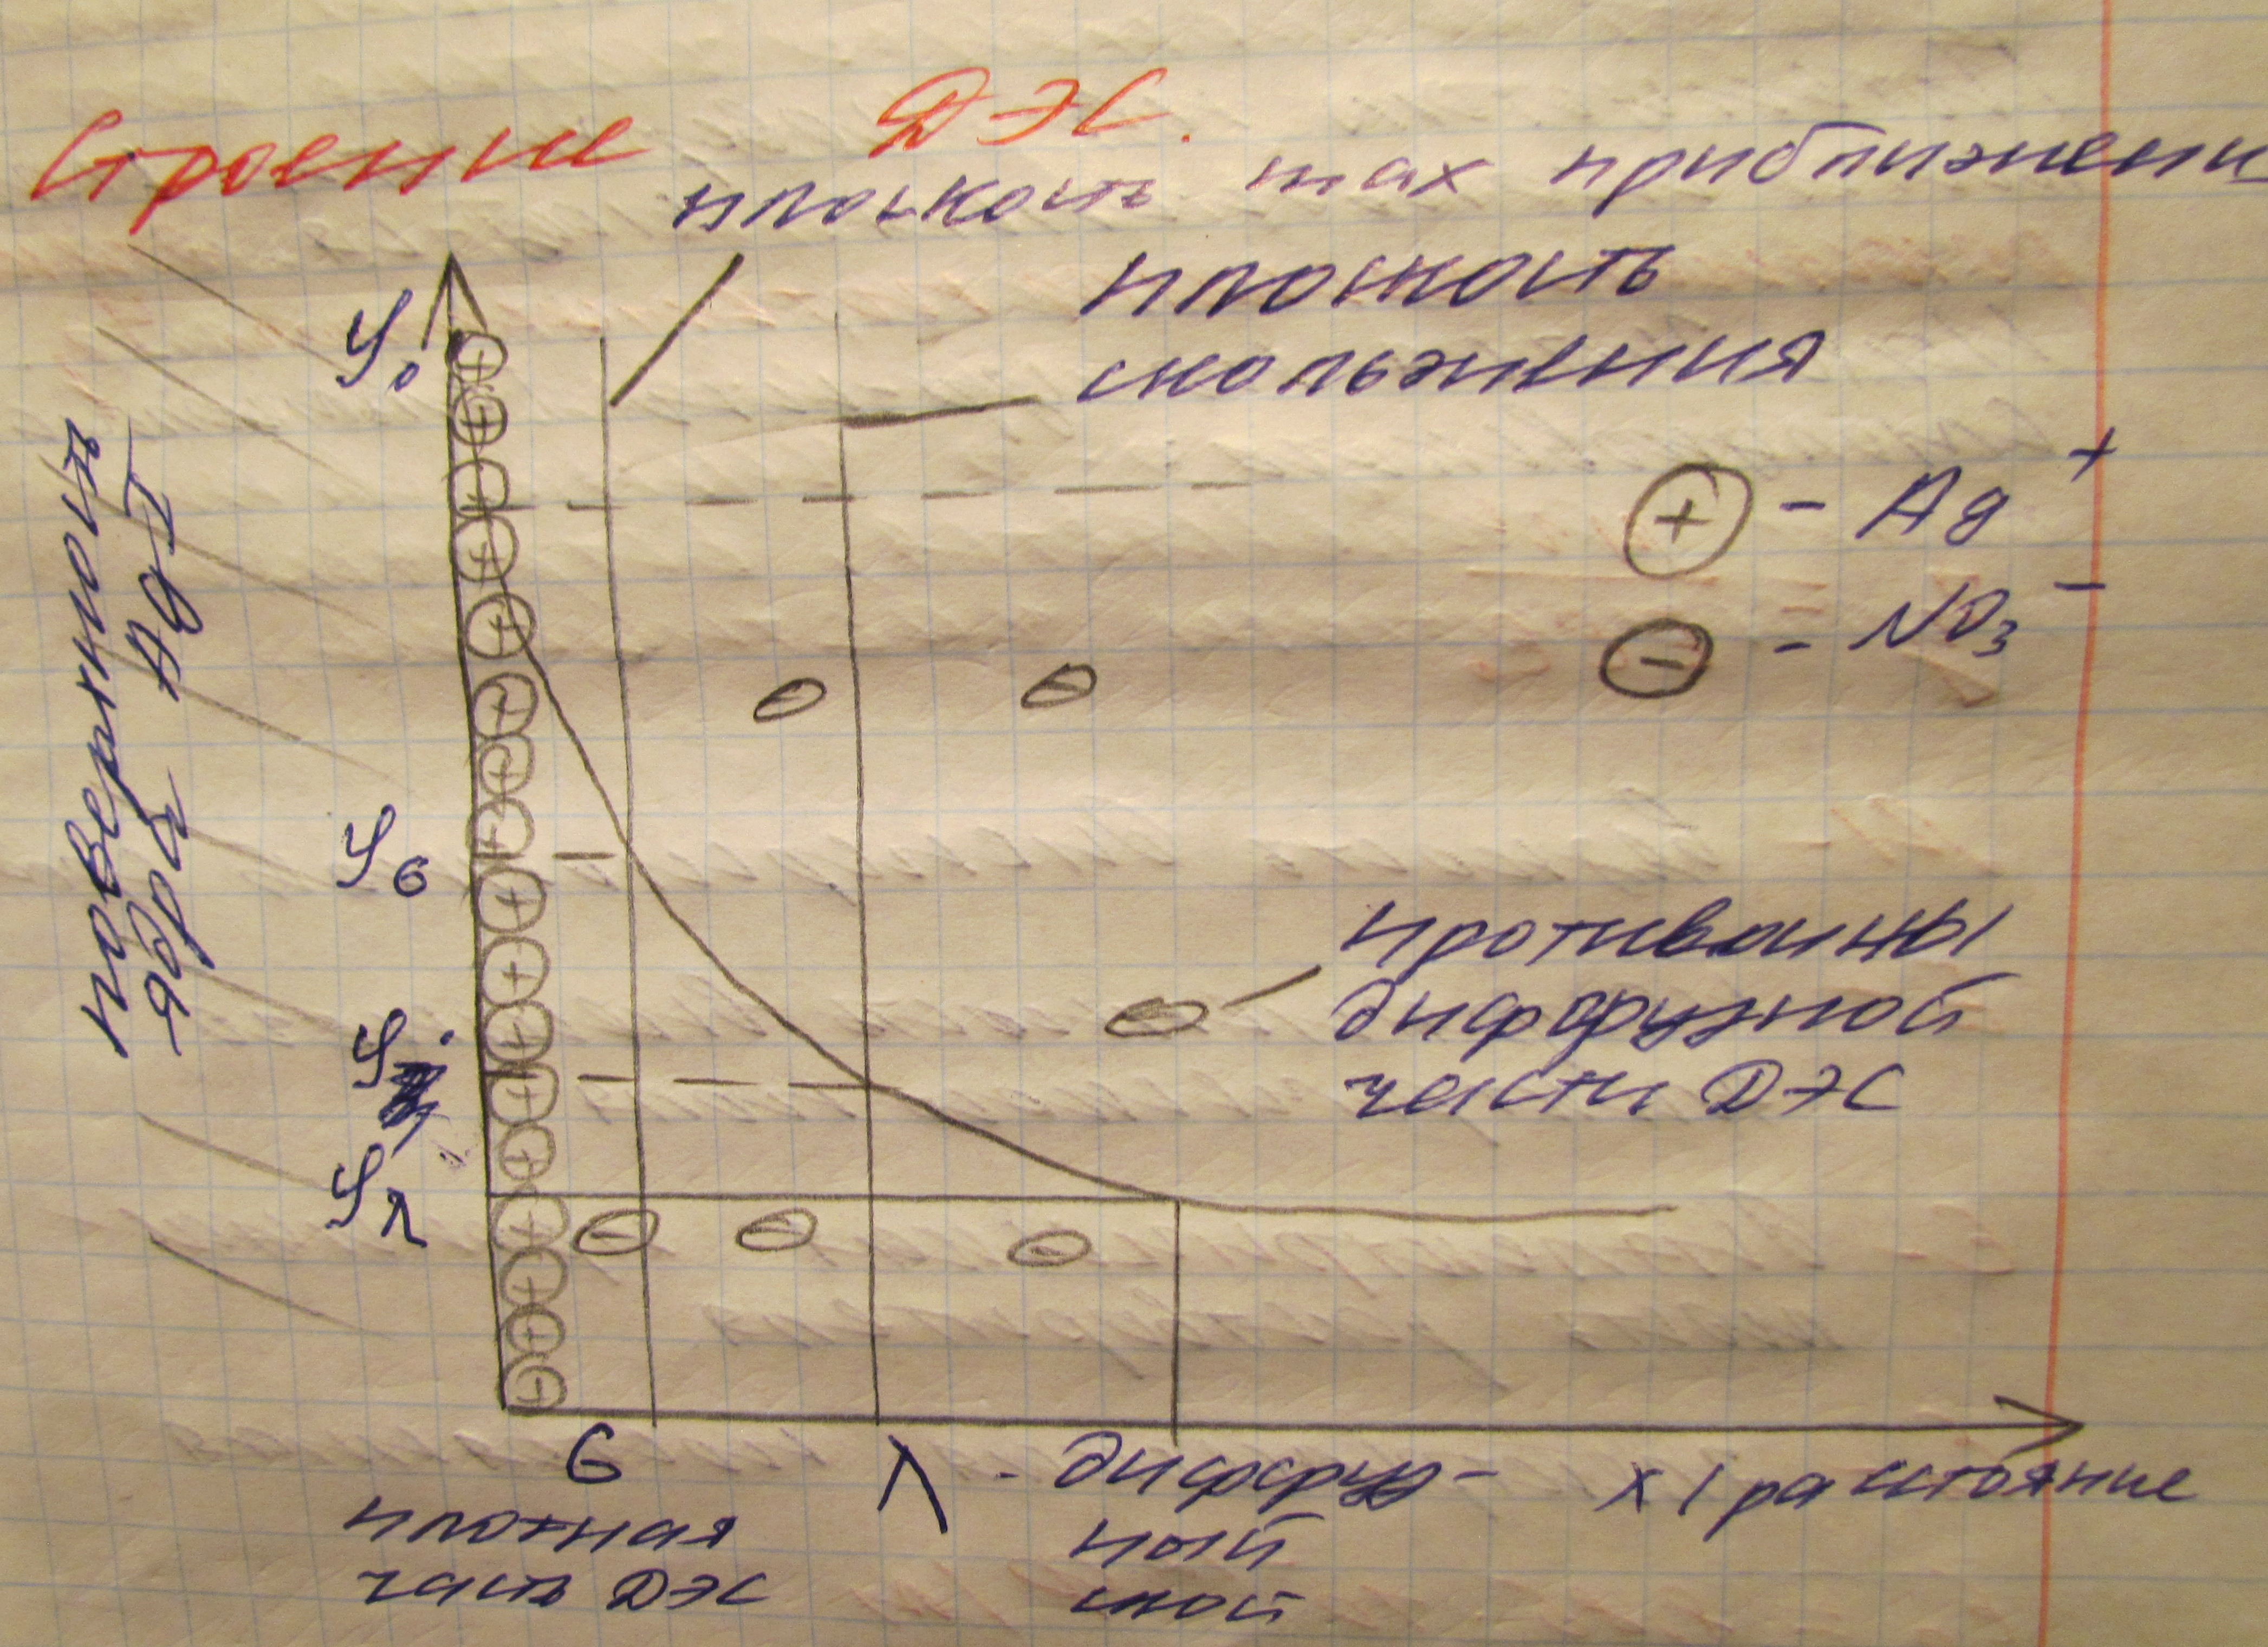 Строение ДЭС.
плоскость max приближени
плоскость
скольжения
φ₀
+ - Ag⁺
- - NO₃⁻
поверхность
ядра AgI
φ_б
противоионы
диффузной
части ДЭС
φ
φ_λ
б
плотная
часть ДЭС
λ - диффуз-
ный
слой
x | расстояние